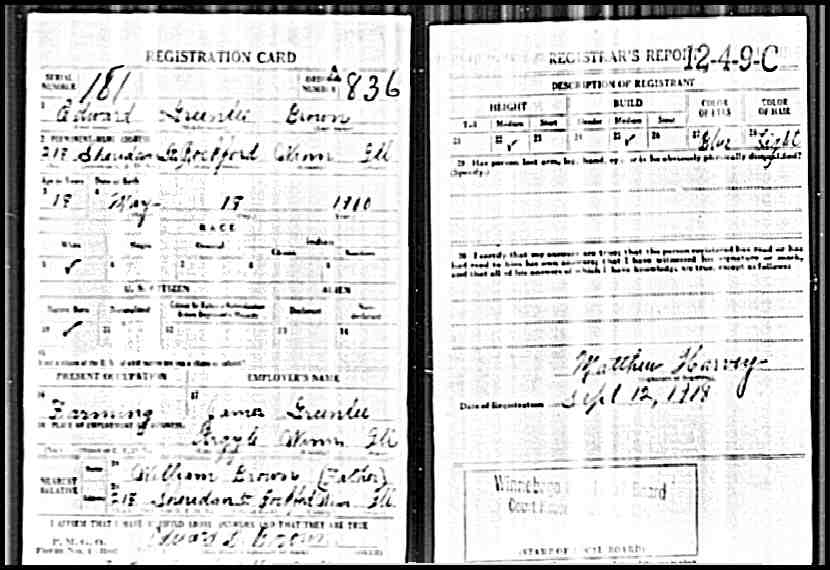 REGISTRATION CARD
SERIAL NUMBER 181 ORDER NUMBER A 836
1 Edward Greenlee Brown
2 PERMANENT HOME ADDRESS
218 Sheridan St Rockford Winn Ill
Age in Years Date of Birth
3 18 4 May 18 1900
RACE
White Negro Oriental Indian
Citizen Noncitizen
5 ✓ 6 7 8 9
U. S. CITIZEN ALIEN
Native Born Naturalized Citizen by Father's Naturalization Before Registrant's Majority Declarant Non-declarant
10 ✓ 11 12 13 14
15
PRESENT OCCUPATION EMPLOYER'S NAME
16 Farming 17 James Greenlee
18 PLACE OF EMPLOYMENT OR BUSINESS
Argyle Winn Ill
NEAREST RELATIVE Name 19 William Brown (Father)
Address 20 218 Sheridan St Rockford Winn Ill
I AFFIRM THAT I HAVE VERIFIED ABOVE ANSWERS AND THAT THEY ARE TRUE
P. M. G. O.
Form No. 1 Edward G. Brown
REGISTRAR'S REPORT 12-4-9-C
DESCRIPTION OF REGISTRANT
HEIGHT BUILD COLOR OF EYES COLOR OF HAIR
Tall Medium Short Slender Medium Stout
21 22 ✓ 23 24 25 ✓ 26 27 Blue 28 Light
29 Has person lost arm, leg, hand, eye, or is he obviously physically disqualified?
(Specify.)
30 I certify that my answers are true; that the person registered has read or has
had read to him his own answers; that I have witnessed his signature or mark,
and that all of his answers of which I have knowledge are true, except as follows:
Matthew Harvey
Date of Registration Sept 12, 1918
Winnebago Board
(STAMP OF LOCAL BOARD)